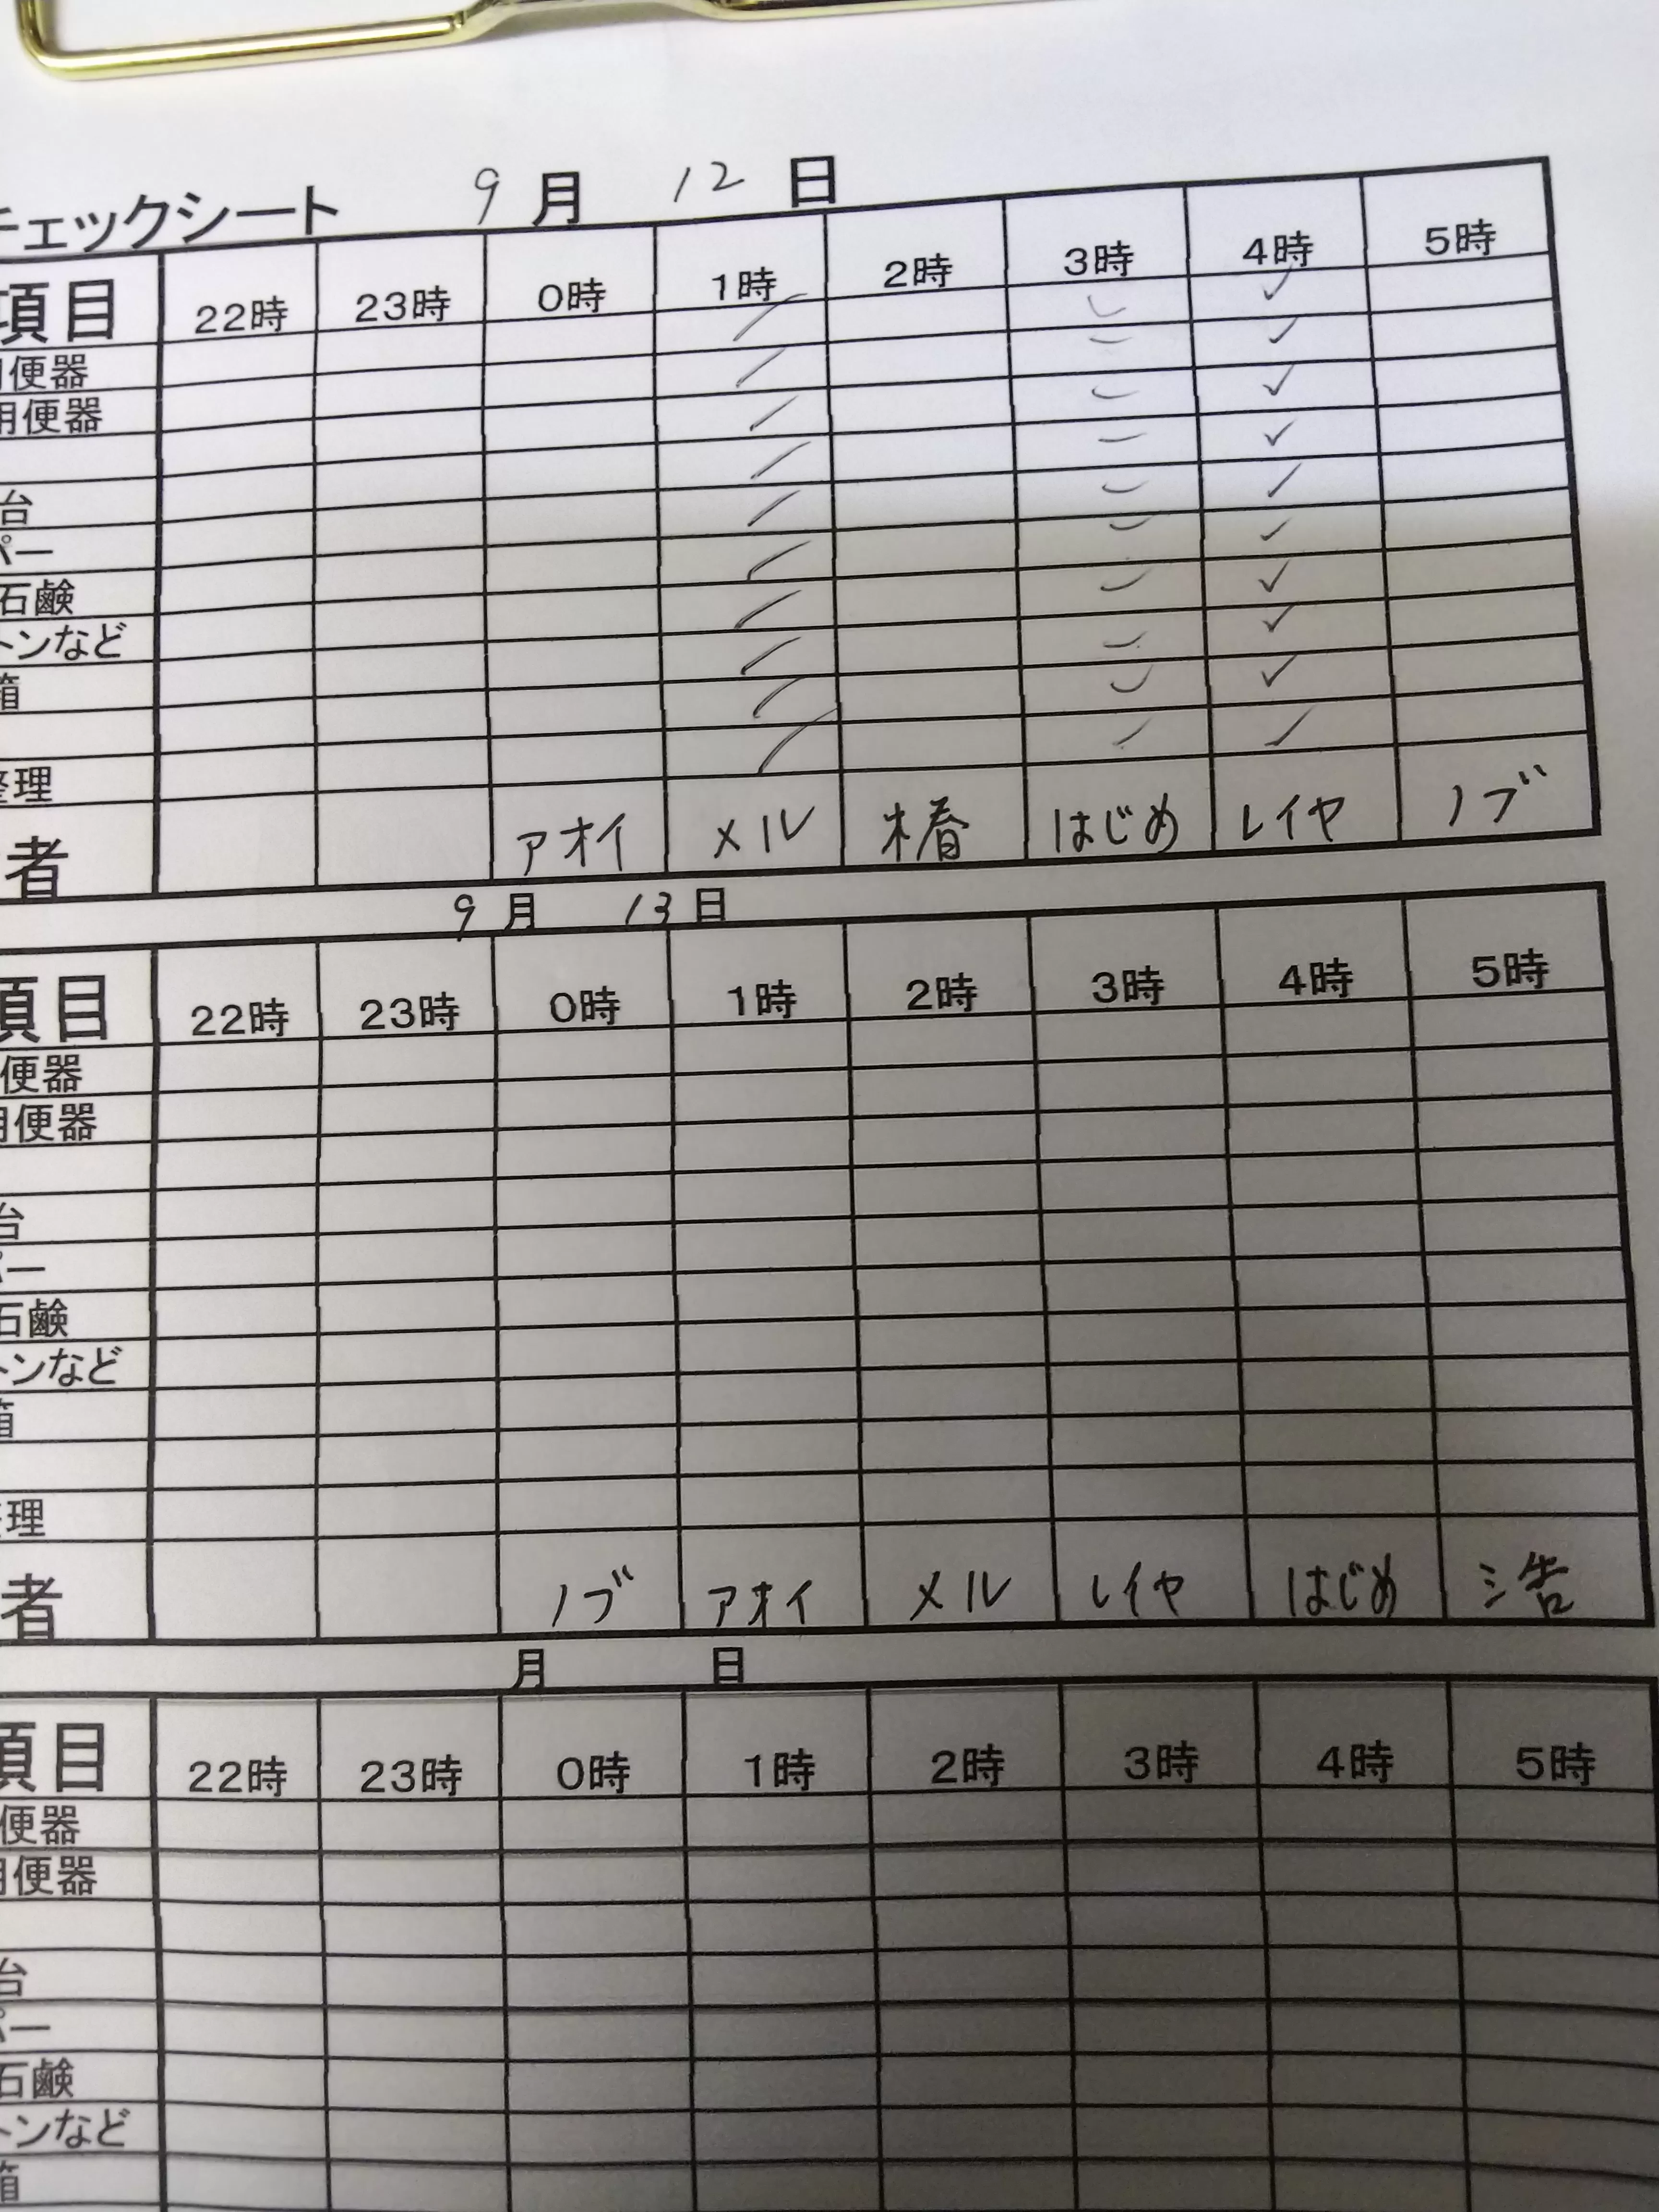 チェックシート 9月 12日
項目 22時 23時 0時 1時 2時 3時 4時 5時
便器
用便器
台
パー
石鹸
トンなど
箱
整理
者 アオイ メル 椿 はじめ レイヤ ノブ
9月 13日
項目 22時 23時 0時 1時 2時 3時 4時 5時
便器
用便器
台
パー
石鹸
トンなど
箱
整理
者 ノブ アオイ メル レイヤ はじめ 浩
月 日
項目 22時 23時 0時 1時 2時 3時 4時 5時
便器
用便器
台
パー
石鹸
トンなど
箱